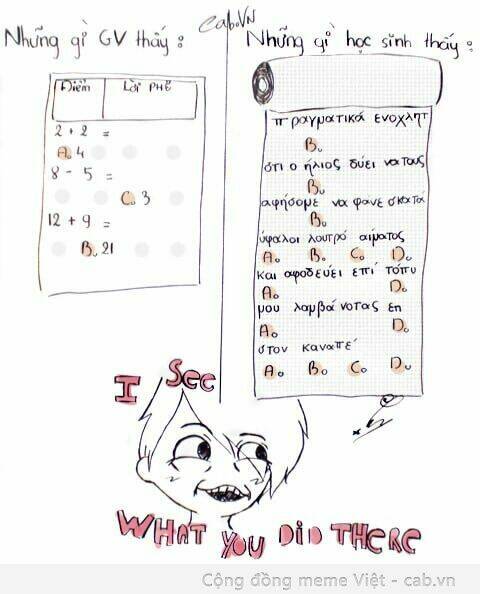 cab.VN
Những gì GV thấy :
Điểm
Lời PHÊ
2 + 2 =
A. 4
8 - 5 =
C. 3
12 + 9 =
B. 21
Những gì học sinh thấy :
πραγματικά ενοχλητ
B.
ότι ο ήλιος δύει να τους
B.
αφήσομε να φανε σκατά
B.
ύφαλοι λουτρό αίματος
A. B. C. D.
και αφοδεύει επί τόπυ
A. D.
μου λαμβάνοτας επ
A. D.
στον καναπέ
A. B. C. D.
I SEE
WHAT YOU DID THERE
Cộng đồng meme Việt - cab.vn